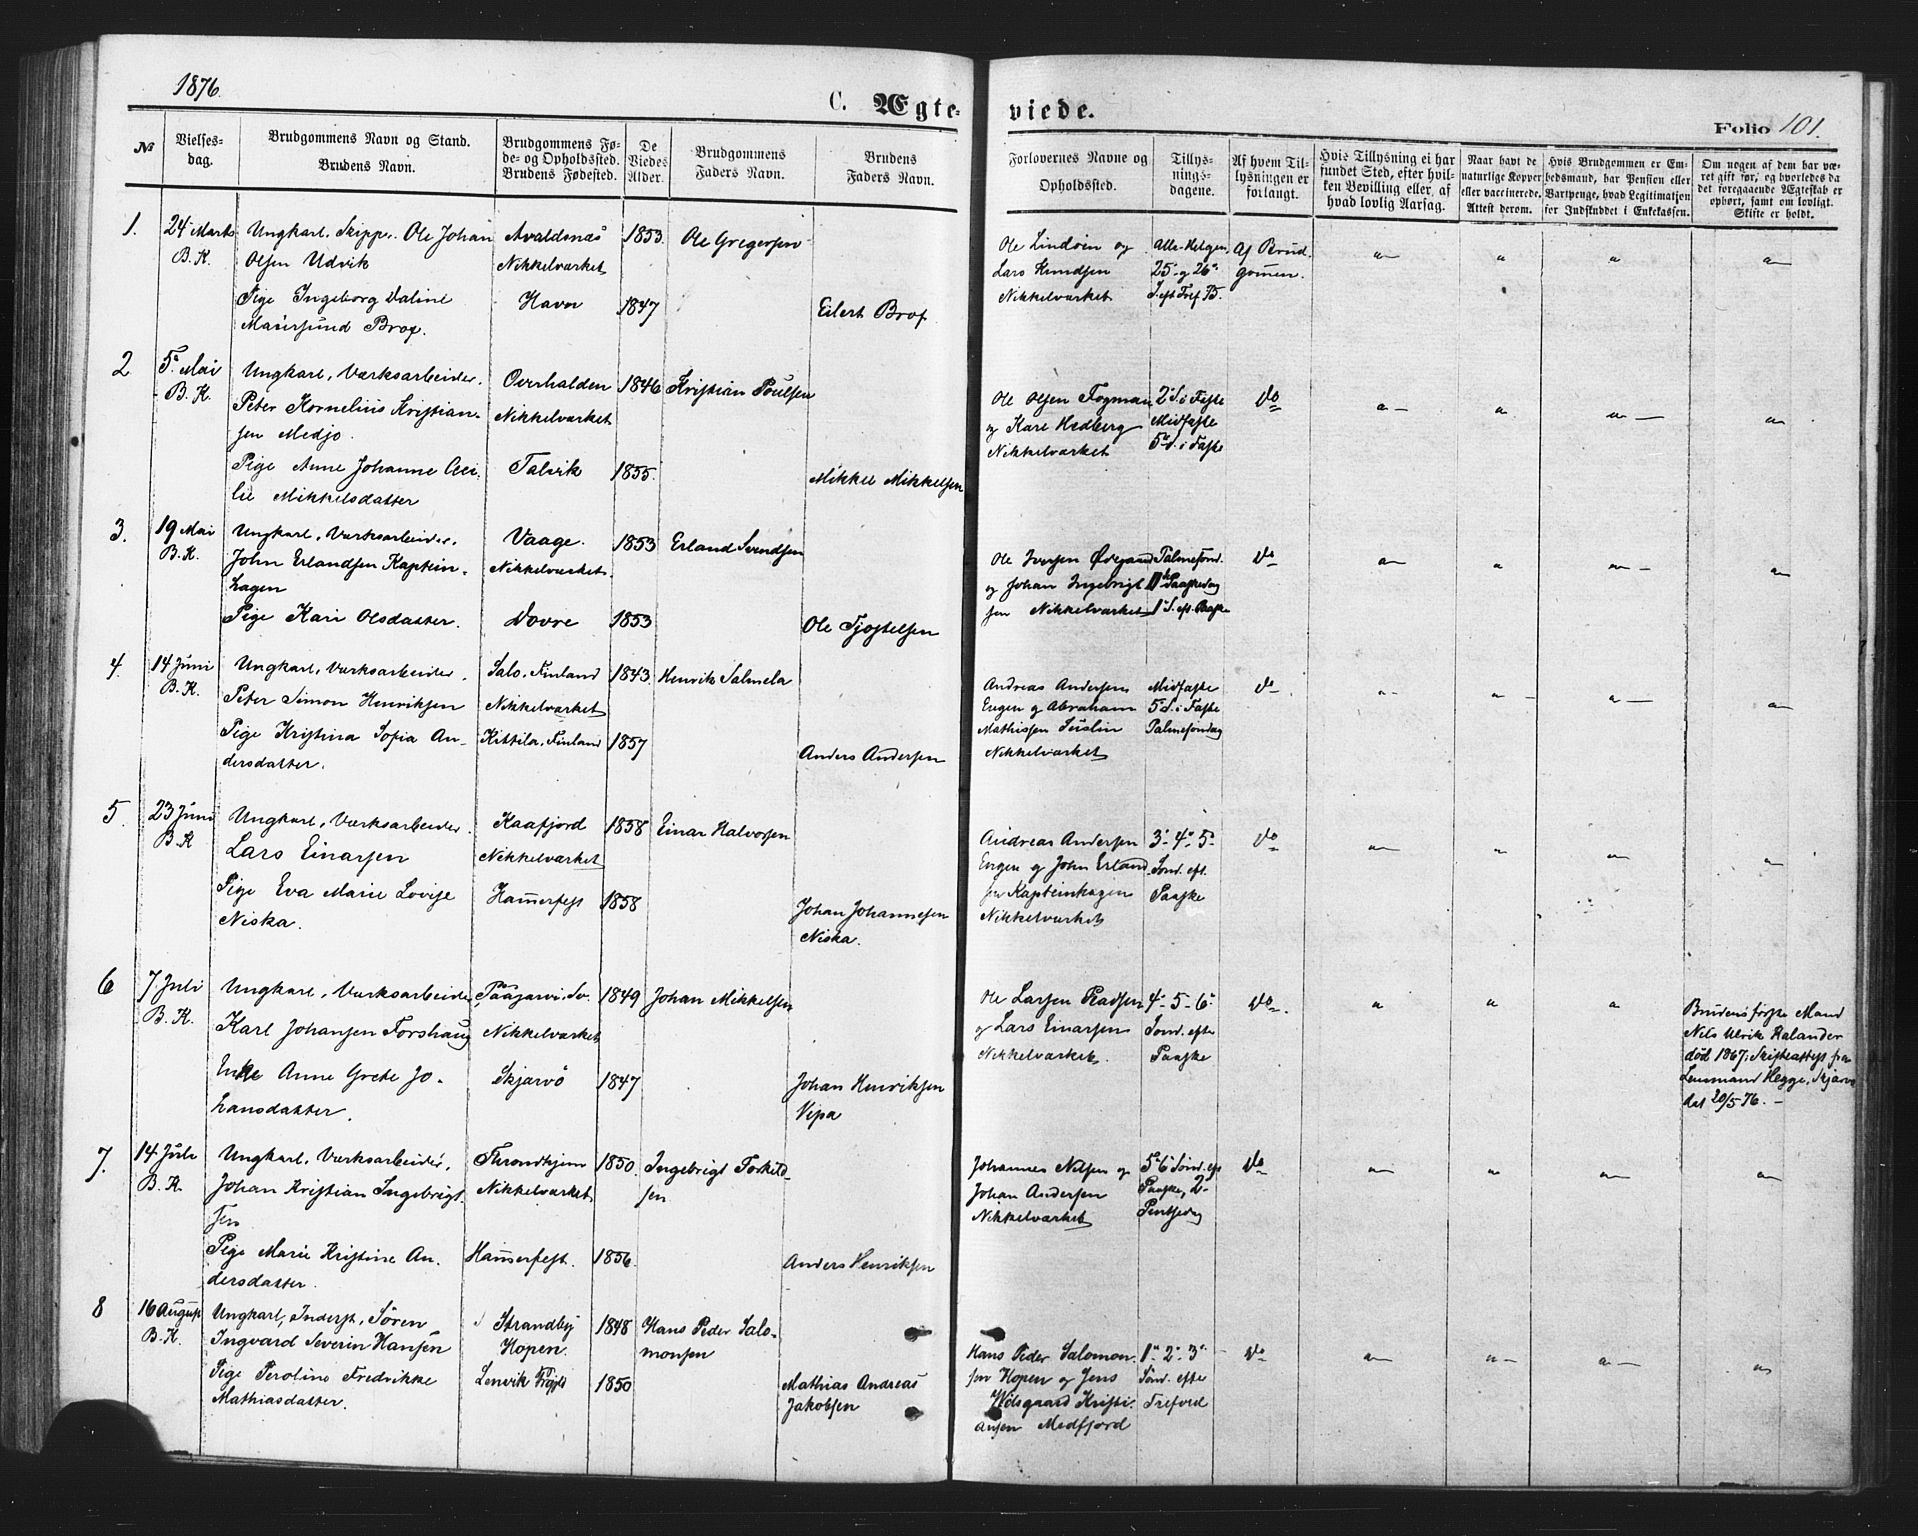 1876.
C. Ægte-
viede.
Folio 101.
№
Vielses-
dag.
Brudgommens Navn og Stand.
Brudens Navn.
Brudgommens Fø-
de- og Opholdssted.
Brudens Fødested.
De
Viedes
Alder.
Brudgommens
Faders Navn.
Brudens
Faders Navn.
Forlovernes Navne og
Opholdssted.
Tillys-
nings-
dagene.
Af hvem Til-
lysningen er
forlangt.
Hvis Tillysning ei har
fundet Sted, efter hvil-
ken Bevilling eller, af
hvad lovlig Aarsag.
Naar havt de
naturlige Kopper
eller vaccinerede.
Attest derom.
Hvis Brudgommen er Em-
bedsmand, har Pension eller
Vartpenge, hvad Legitimation
for Indskuddet i Enkekassen.
Om nogen af dem har væ-
ret gift før, og hvorledes da
det foregaaende Ægteskab er
ophørt, samt om lovligt
Skifte er holdt.
1.
24 Marts
B. K.
Ungkarl, Skipper Ole Johan
Olsen Udvik
Pige Ingeborg Valine
Maursund Brox.
Avaldsnæs
Nikkelværket
Havn
1853
1847
Ole Gregersen
Eilert Brox
Ole Lindøen og
Lars Knudsen
Nikkelværket
Alle-Helgen,
25. og 26.
S. eft Tref B.
Af Brud-
gomen.
2
5. Mai
B. K.
Ungkarl, Værksarbeider,
Peter Kornelius Kristian-
sen Medjo.
Pige Anne Johanne Ceci-
lie Mikkelsdatter
Overhalden
Nikkelværket
Talvik
1846
1855.
Kristian Poulsen
Mikkel Mikkelsen
Ole Olsen Fogman
og Karl Hedberg
Nikkelværket
2 S. i Faste
Midfaste
5 S. i Faste
Do
3.
19 Mai
B. K.
Ungkarl, Værksarbeider,
John Erlandsen Kaptein-
hagen
Pige Kari Olsdatter.
Vaage.
Nikkelværket.
Dovre
1853
1853
Erland Svendsen
Ole Tjostelsen
Ole Iversen Ødegaard
og Johan Ingebrigt-
sen Nikkelværket
Palmesønd.
Paaskedag
1 S. eft. Paaske
Do
4.
14 Juni
B. K.
Ungkarl, Værksarbeider,
Peter Simon Henriksen
Pige Kristina Sofia An-
dersdatter.
Salo, Finland
Nikkelværket
Kittila, Finland
1843
1857
Henrik Salmela
Anders Andersen
Andreas Andersen
Engen og Abraham
Mathissen
Nikkelværket
Midfaste
5 S. i Faste
Palmesøndag
Do
5.
23 Juni
B. K
Ungkarl, Værksarbeider
Lars Einarsen
Pige Eva Marie Lovise
Niska.
Kaafjord
Nikkelværket
Hamerfest
1858
1858
Einar Halvorsen
Johan Johannesen
Niska.
Andreas Andersen
Engen og John Erland-
sen Kapteinhagen
Nikkelværket
3. 4. 5.
Sønd. eft.
Paaske
Do
6
7 Juli
B. K.
Ungkarl, Værksarbeider
Karl Johansen Forshaug
Enke Anne Grete Jo-
hansdatter.
Paajarvi, Sv.
Nikkelværket
Skjærvö
1849
1847
Johan Mikkelsen
Johan Henriksen
Vipa
Ole Larsen
og Lars Einarsen
Nikkelværket.
4. 5. 6.
Sønd. efte
Paaske
Do
Brudens første Mand
Nils Ulrik Kalander
død 1867; Skifteattest fra
Lensmand Hegge, Skjærvö
dat 20/5 76.
7.
14 Juli
B. K.
Ungkarl, Værksarbeider,
Johan Kristian Ingebrigt-
sen
Pige Marie Kristine An-
dersdatter.
Throndhjem
Nikkelværket
Hamerfest.
1850
1856
Ingebrigt Torkild-
sen
Anders Henriksen
Johannes Nilsen og
Johan Andersen
Nikkelværket
5. 6 Sønd. eft
Paaske, 2.
Pintsedag
Do
8
16 August
B. K.
Ungkarl, Inderst, Sören
Ingvard Severin Hansen
Pige Peroline Fredrikke
Mathiasdatter.
Strandby
Hopen.
Lenvik
1848
1850
Hans Peder Salo-
monsen
Mathias Andreas
Jakobsen
Hans Peder Salomon-
sen Hopen og Jens
Kristi-
ansen Medfjord
1. 2. 3.
Sønd. efte
Trefold
Do